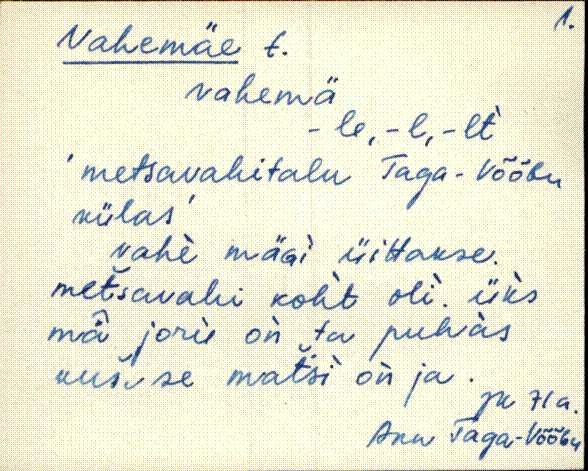 1.
Vahemäe t.
vahemä
-le, -l, -lt̀
'metsavahitalu Taga-Võõbu
külas'
vahè mägì üittakse.
metšavahi koht̀ olì. üks̀
mâ joru oǹ ta puhàs
kuš̀se matšì oǹ ja.
71a.
Ann Taga-Võõbu